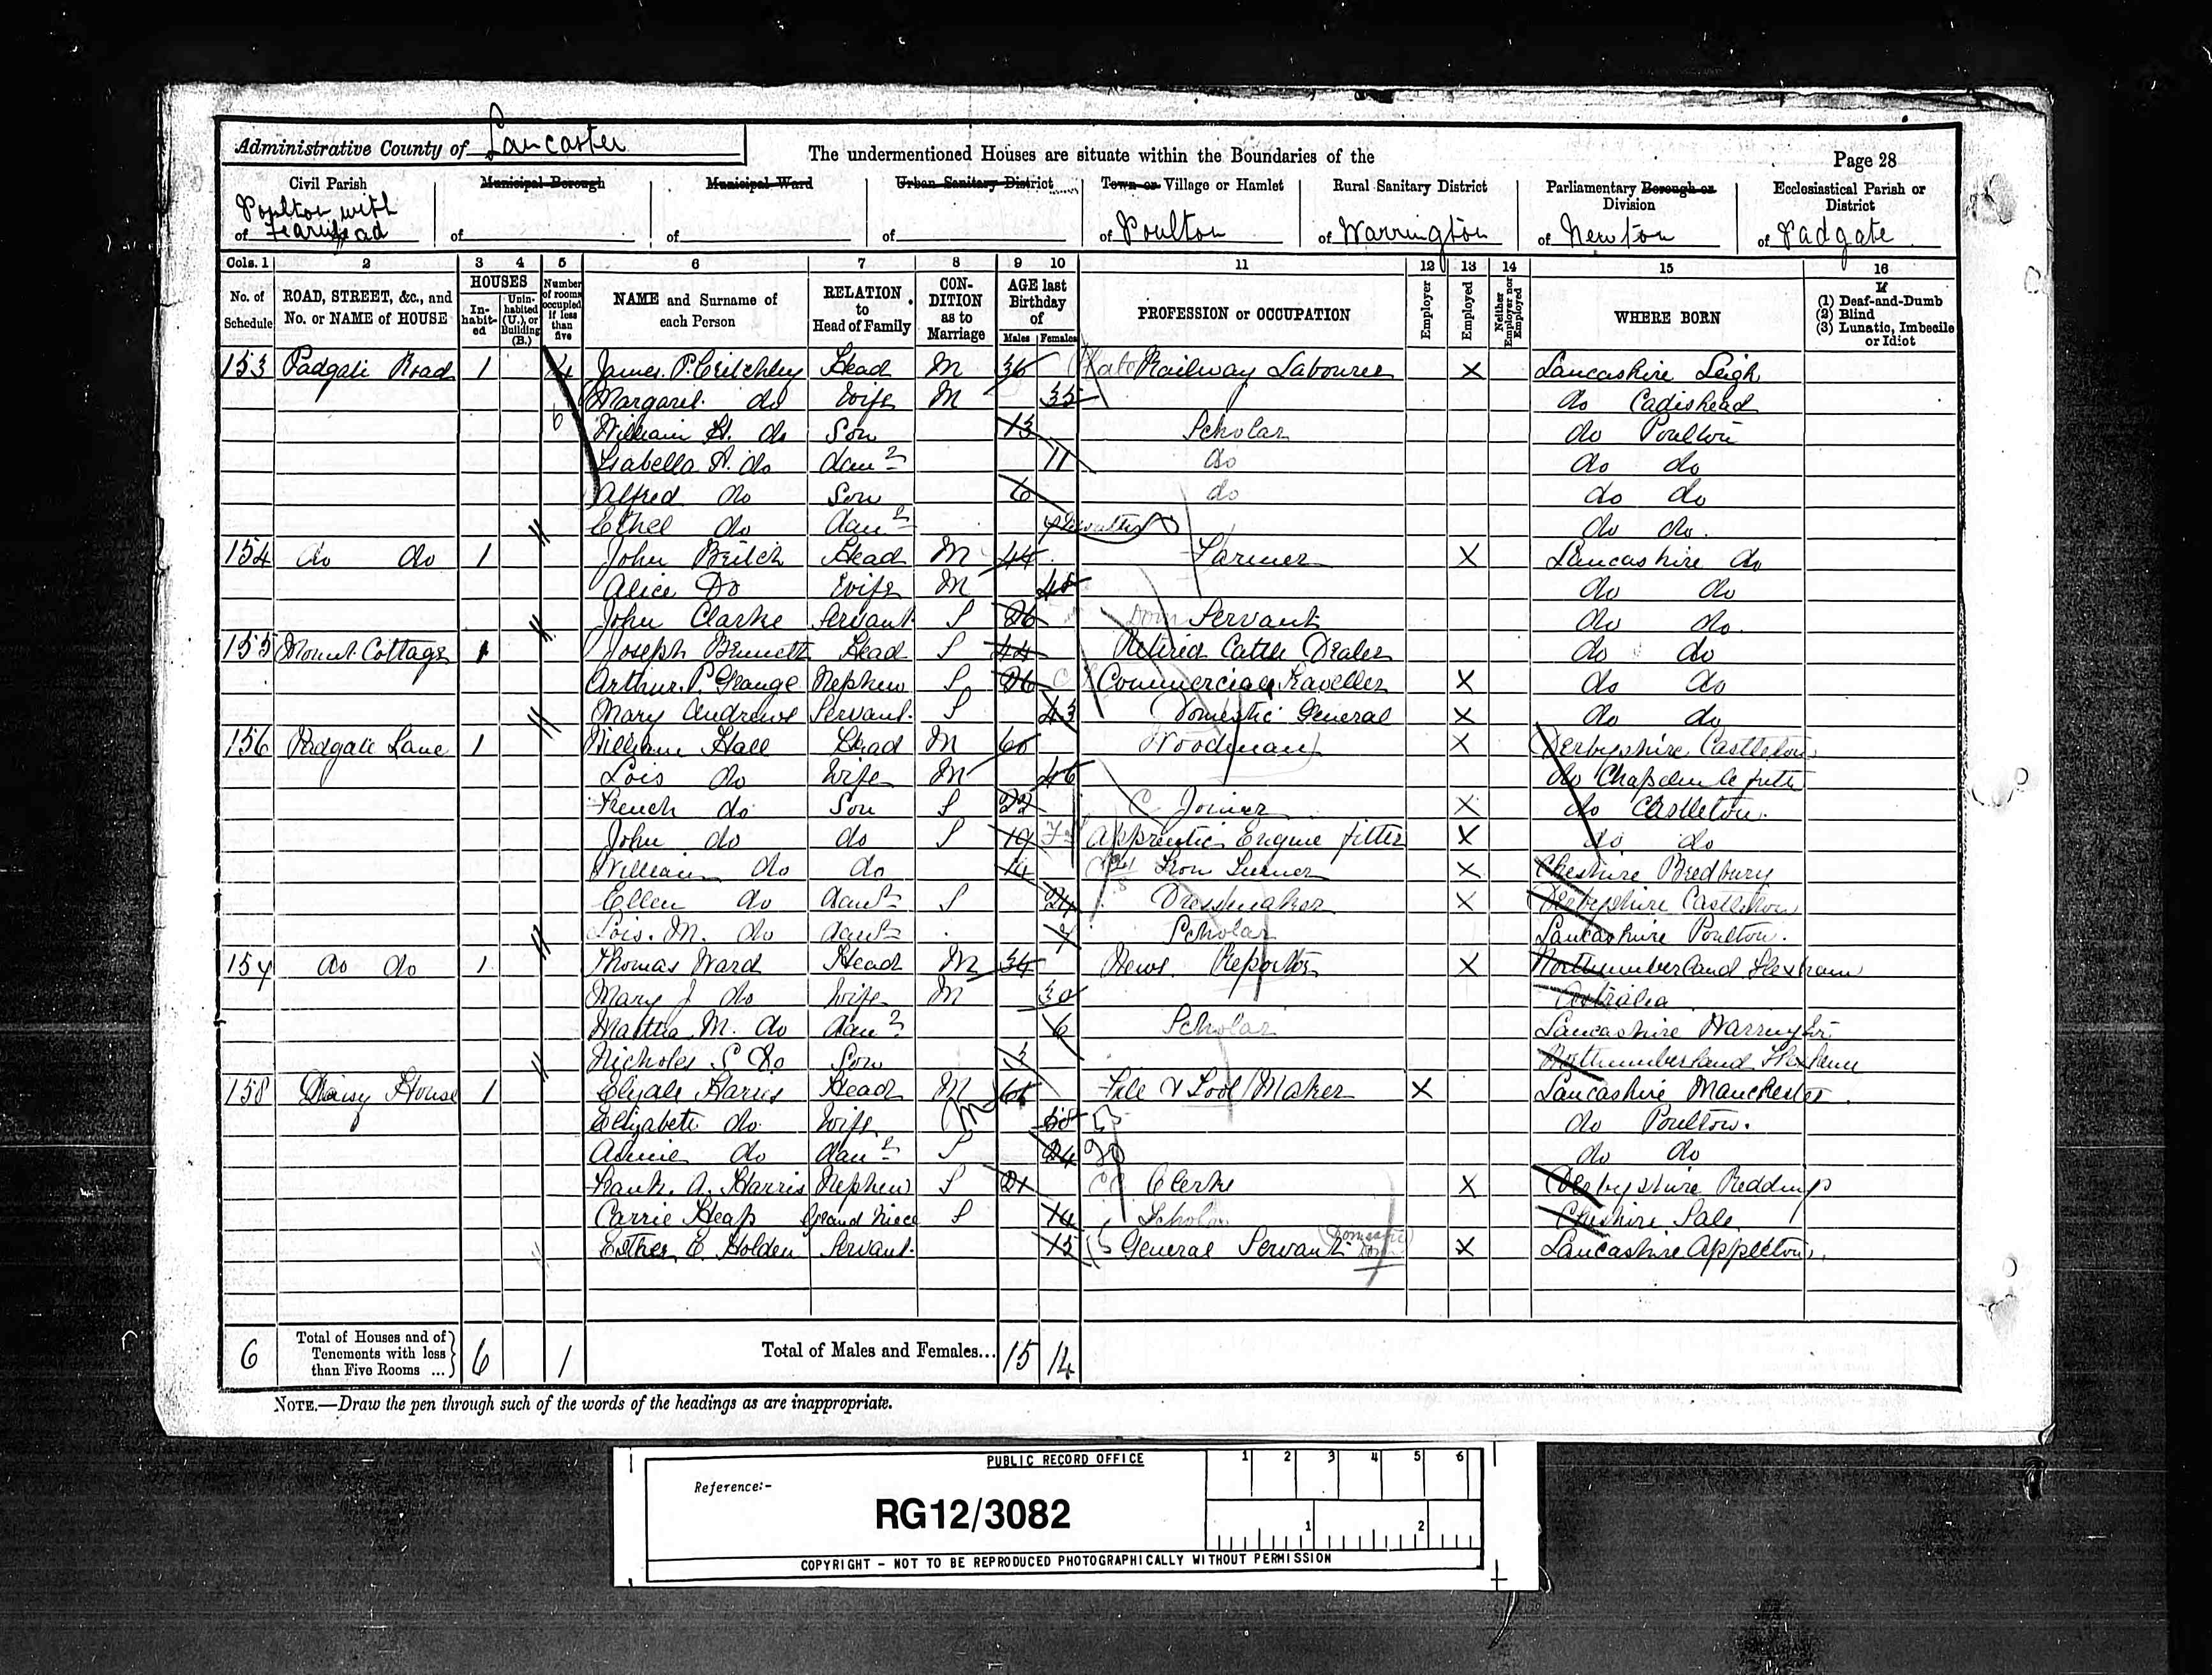 Administrative County of Lancaster
The undermentioned Houses are situate within the Boundaries of the
Page 28
Civil Parish of Poulton with Fearnhead
Municipal Borough of
Municipal Ward of
Urban Sanitary District of
Town or Village or Hamlet of Poulton
Rural Sanitary District of Warrington
Parliamentary Borough or Division of Newton
Ecclesiastical Parish or District of Padgate
Cols. 1 2 3 4 5 6 7 8 9 10 11 12 13 14 15 16
No. of Schedule
ROAD, STREET, &c., and No. or NAME of HOUSE
HOUSES
In-habit-ed
Unin-habited (U.), or Building (B.)
Number of rooms occupied if less than five
NAME and Surname of each Person
RELATION to Head of Family
CON-DITION as to Marriage
AGE last Birthday of
Males Females
PROFESSION or OCCUPATION
Employer
Employed
Neither Employer nor Employed
WHERE BORN
If
(1) Deaf-and-Dumb
(2) Blind
(3) Lunatic, Imbecile or Idiot
153 Padgate Road 1 4 James P. Critchley Head M 36 Railway Labourer X Lancashire Leigh
Margaret do Wife M 35 do Cadishead
William H. do Son 13 Scholar do Poulton
Isabella A. do daur 11 do do do
Alfred do Son 6 do do do
Ethel do daur do do
154 do do 1 John Britch Head M 44 Farmer X Lancashire do
Alice Do Wife M 48 do do
John Clarke Servant S 26 Servant do do
155 Mount Cottage 1 Joseph Bennett Head S 44 Retired Cattle Dealer do do
Arthur P. Grange Nephew S 26 Commercial Traveller X do do
Mary Andrews Servant S 43 Domestic General X do do
156 Padgate Lane 1 William Hall Head M 60 Woodman X Derbyshire Castleton
Lois do Wife M 46 do Chapel en le frith
French do Son S 22 Joiner X do Castleton
John do do S 19 Apprentice Engine fitter X do do
William do do 14 Iron Turner X Cheshire Bredbury
Ellen do daur S 24 Dressmaker X Derbyshire Castleton
Lois. M. do daur 7 Scholar Lancashire Poulton.
157 do do 1 Thomas Ward Head M 34 News Reporter X Northumberland Hexham
Mary J do Wife M 30 Astralia
Martha M. do daur 6 Scholar Lancashire Warrington
Nicholas S Do Son 3 Northumberland Hexham
158 Daisy House 1 Elijah Harris Head M File & Tool Maker X Lancashire Manchester
Elizabeth do Wife M do Poulton.
Annie do daur S 24 do do
Frank. A. Harris Nephew S 21 Clerk X Derbyshire Reddings
Carrie Heap Grand Niece S 14 Scholar Cheshire Sale
Esther E Holden Servant 15 General Servant Domestic X Lancashire Appleton
6 Total of Houses and of Tenements with less than Five Rooms ... 6 1 Total of Males and Females... 15 14
NOTE.—Draw the pen through such of the words of the headings as are inappropriate.
PUBLIC RECORD OFFICE
1 2 3 4 5 6
Reference:-
RG12/3082
1 2
COPYRIGHT - NOT TO BE REPRODUCED PHOTOGRAPHICALLY WITHOUT PERMISSION